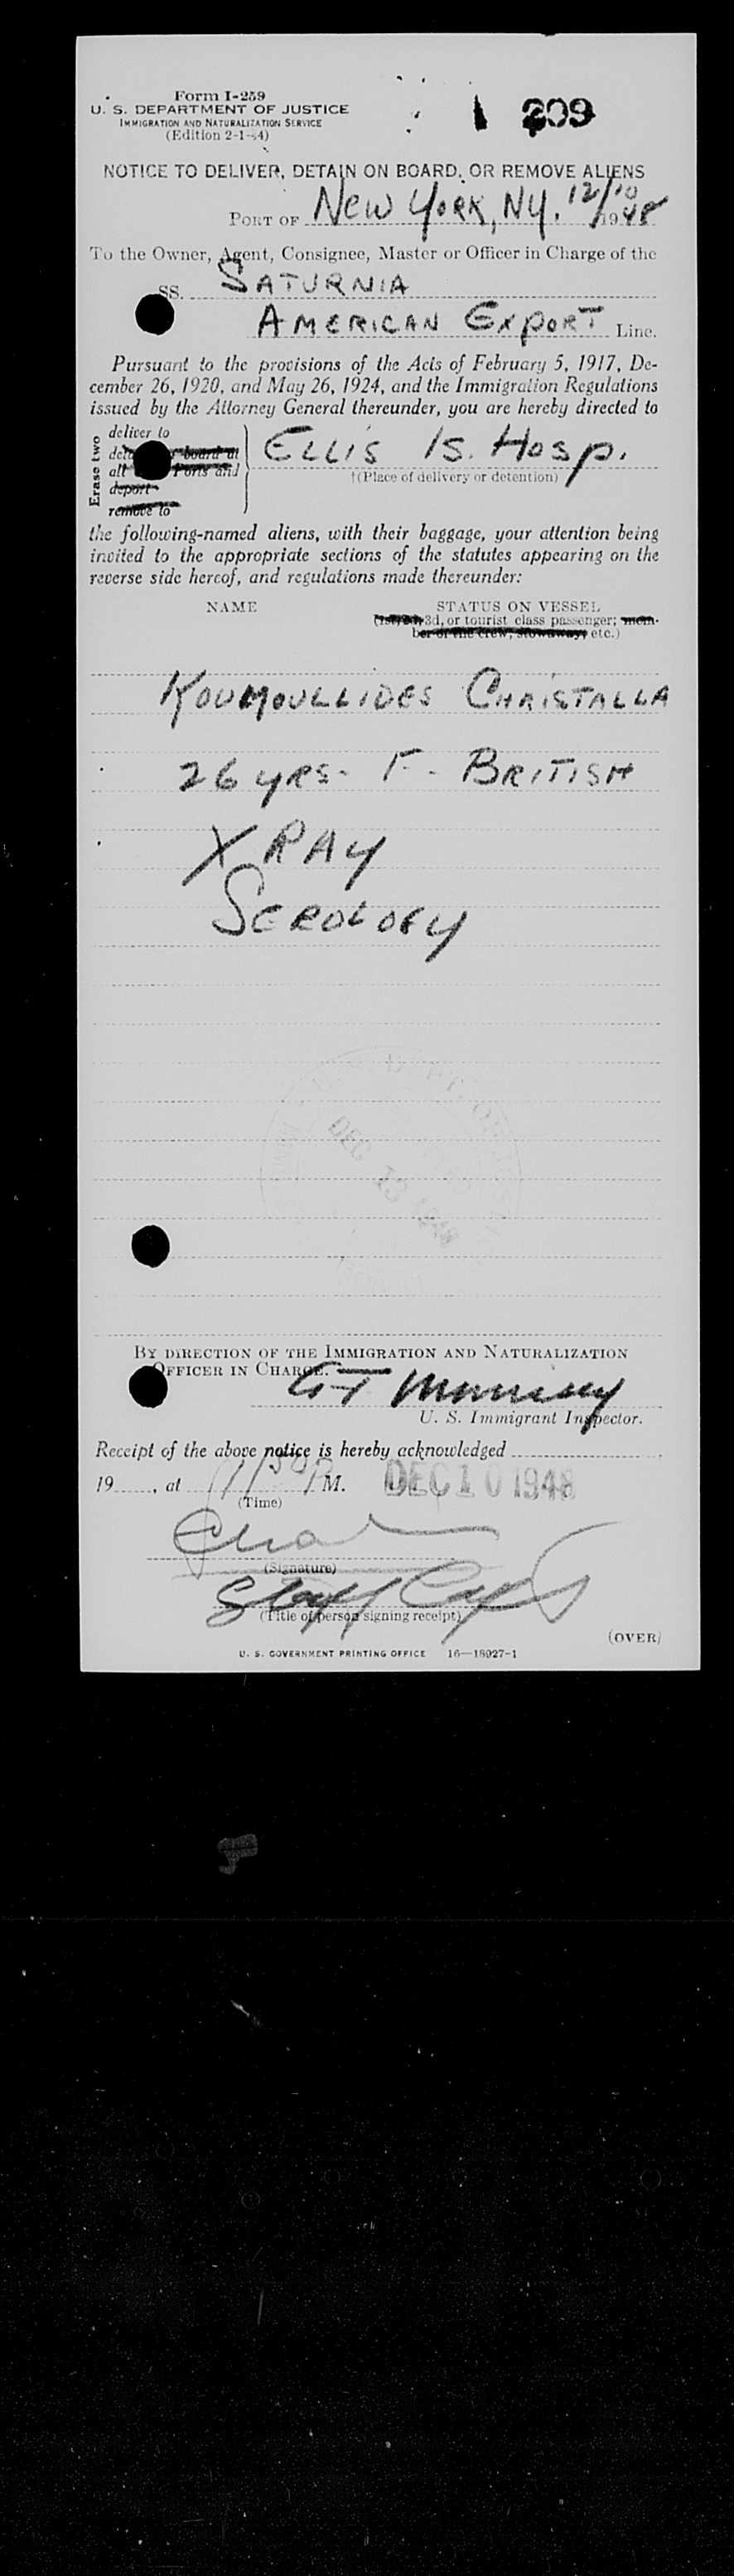 Form I-259
U. S. DEPARTMENT OF JUSTICE
IMMIGRATION AND NATURALIZATION SERVICE
(Edition 2-1-44)
209
NOTICE TO DELIVER, DETAIN ON BOARD, OR REMOVE ALIENS
PORT OF New York, NY. 12/10 1948
To the Owner, Agent, Consignee, Master or Officer in Charge of the
SS. SATURNIA
AMERICAN EXPORT Line.
Pursuant to the provisions of the Acts of February 5, 1917, De-
cember 26, 1920, and May 26, 1924, and the Immigration Regulations
issued by the Attorney General thereunder, you are hereby directed to
Erase two
deliver to
board at
all Ports and
deport
remove to
ELLIS IS. Hosp.
†(Place of delivery or detention)
the following-named aliens, with their baggage, your attention being
invited to the appropriate sections of the statutes appearing on the
reverse side hereof, and regulations made thereunder:
NAME STATUS ON VESSEL
3d, or tourist class passenger; mem-
ber of the crew, stowaway, etc.)
KOUMOULLIDES CHRISTALLA
26 yrs. F. BRITISH
X RAY
SEROLOGY
DEC 13 1948
BY DIRECTION OF THE IMMIGRATION AND NATURALIZATION
OFFICER IN CHARGE.
U. S. Immigrant Inspector.
Receipt of the above notice is hereby acknowledged
19......, at M. DEC 10 1948
(Time)
(Signature)
Staff
(Title of person signing receipt)
(OVER)
U. S. GOVERNMENT PRINTING OFFICE 16—18027-1